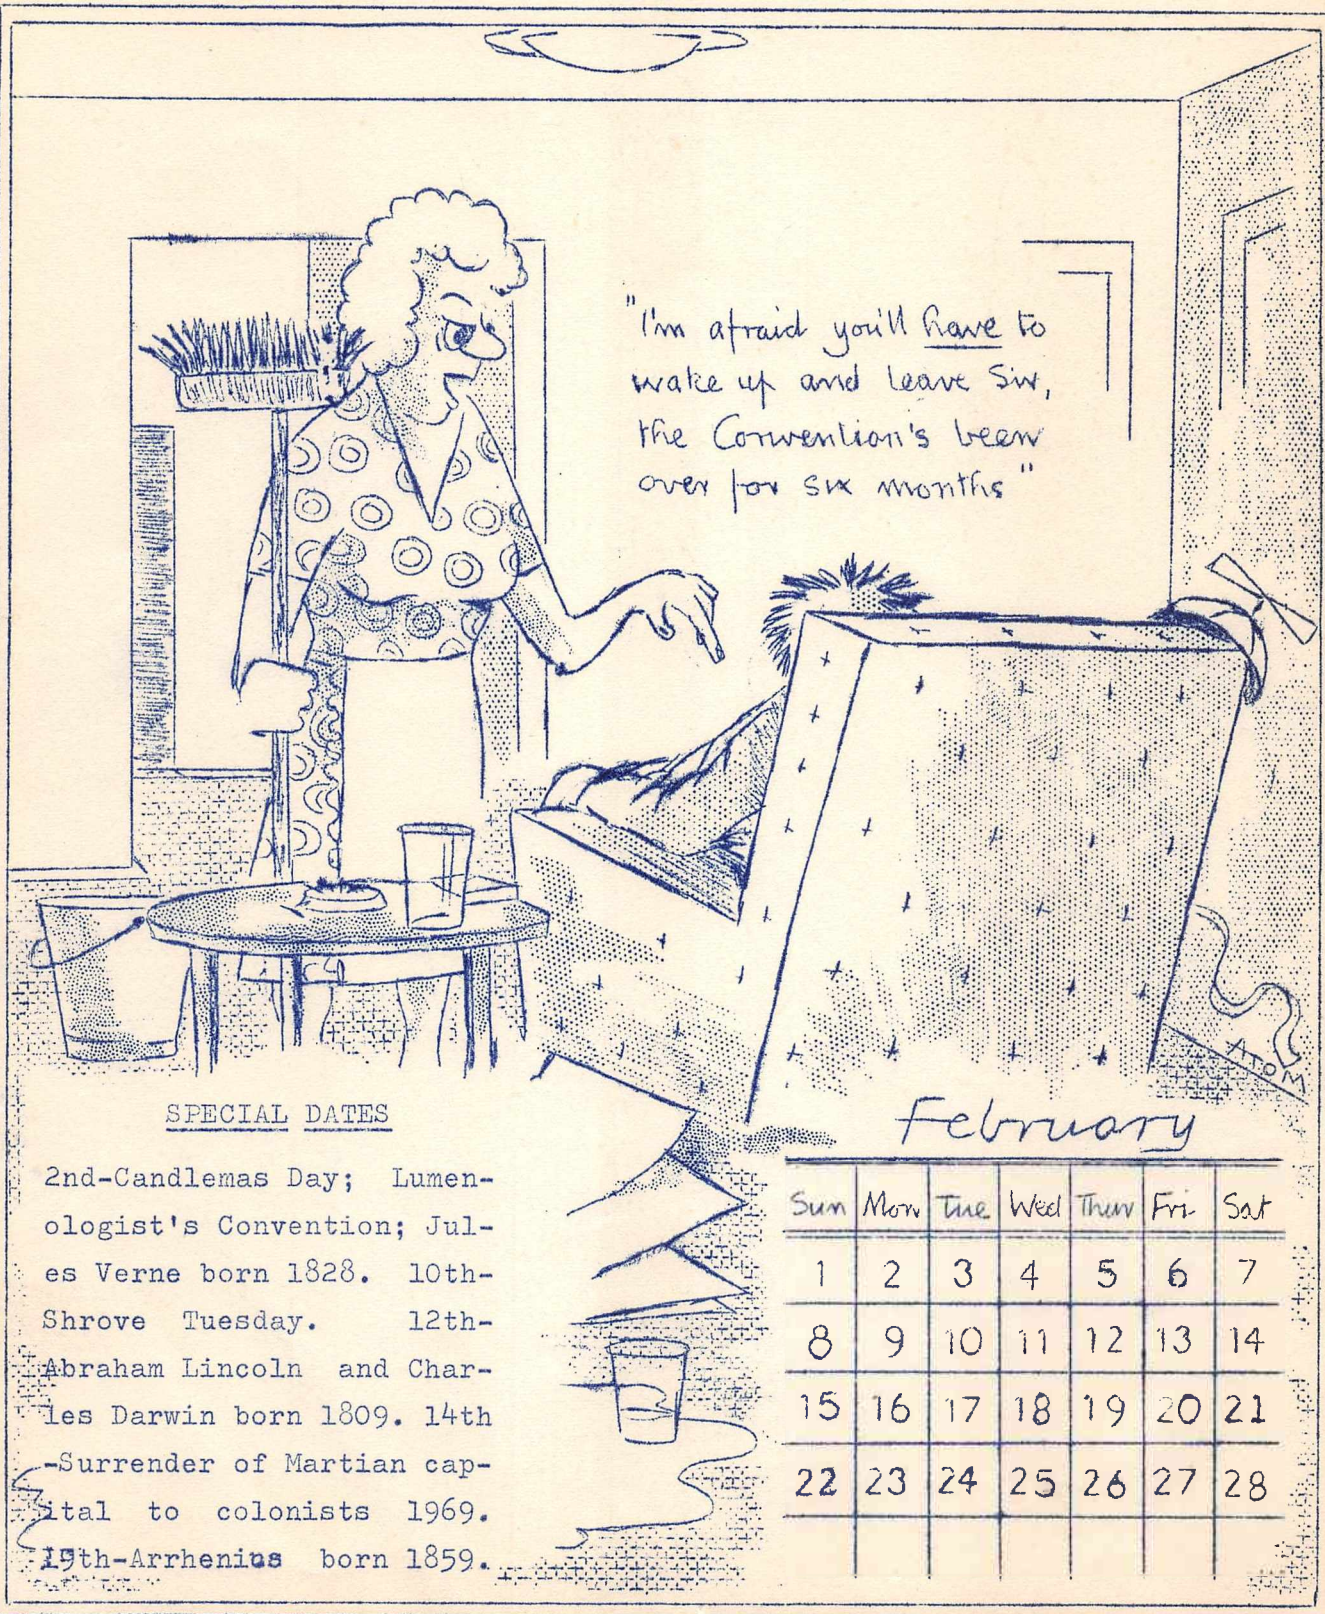 "I'm afraid you'll have to
wake up and leave Sir,
the Convention's been
over for six months"
ATOM
SPECIAL DATES
2nd-Candlemas Day; Lumen-
ologist's Convention; Jul-
es Verne born 1828. 10th-
Shrove Tuesday. 12th-
Abraham Lincoln and Char-
les Darwin born 1809. 14th
-Surrender of Martian cap-
ital to colonists 1969.
19th-Arrhenius born 1859.
February
Sun Mon Tue Wed Thur Fri Sat
1 2 3 4 5 6 7
8 9 10 11 12 13 14
15 16 17 18 19 20 21
22 23 24 25 26 27 28